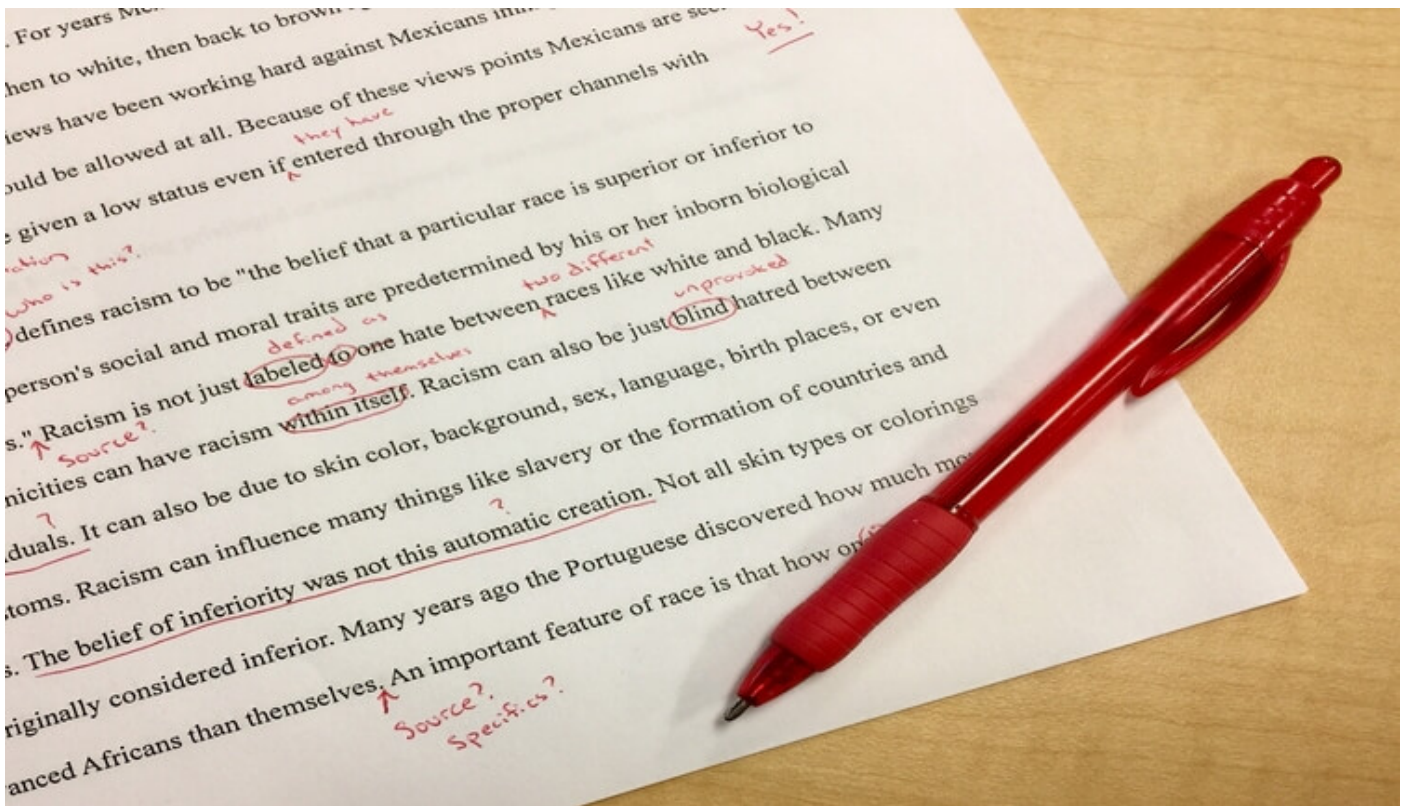 . For years
then to white, then back to brown
views have been working hard against Mexicans
Yes!
ould be allowed at all. Because of these views points Mexicans are
they have
e given a low status even if entered through the proper channels with
who is this?
defines racism to be "the belief that a particular race is superior or inferior to
person's social and moral traits are predetermined by his or her inborn biological
defined as
two different
s." Racism is not just labeled to one hate between races like white and black. Many
Source?
among themselves
unprovoked
nicities can have racism within itself. Racism can also be just blind hatred between
?
duals. It can also be due to skin color, background, sex, language, birth places, or even
stoms. Racism can influence many things like slavery or the formation of countries and
?
s. The belief of inferiority was not this automatic creation. Not all skin types or colorings
riginally considered inferior. Many years ago the Portuguese discovered how much
anced Africans than themselves. An important feature of race is that how
Source?
Specifics?